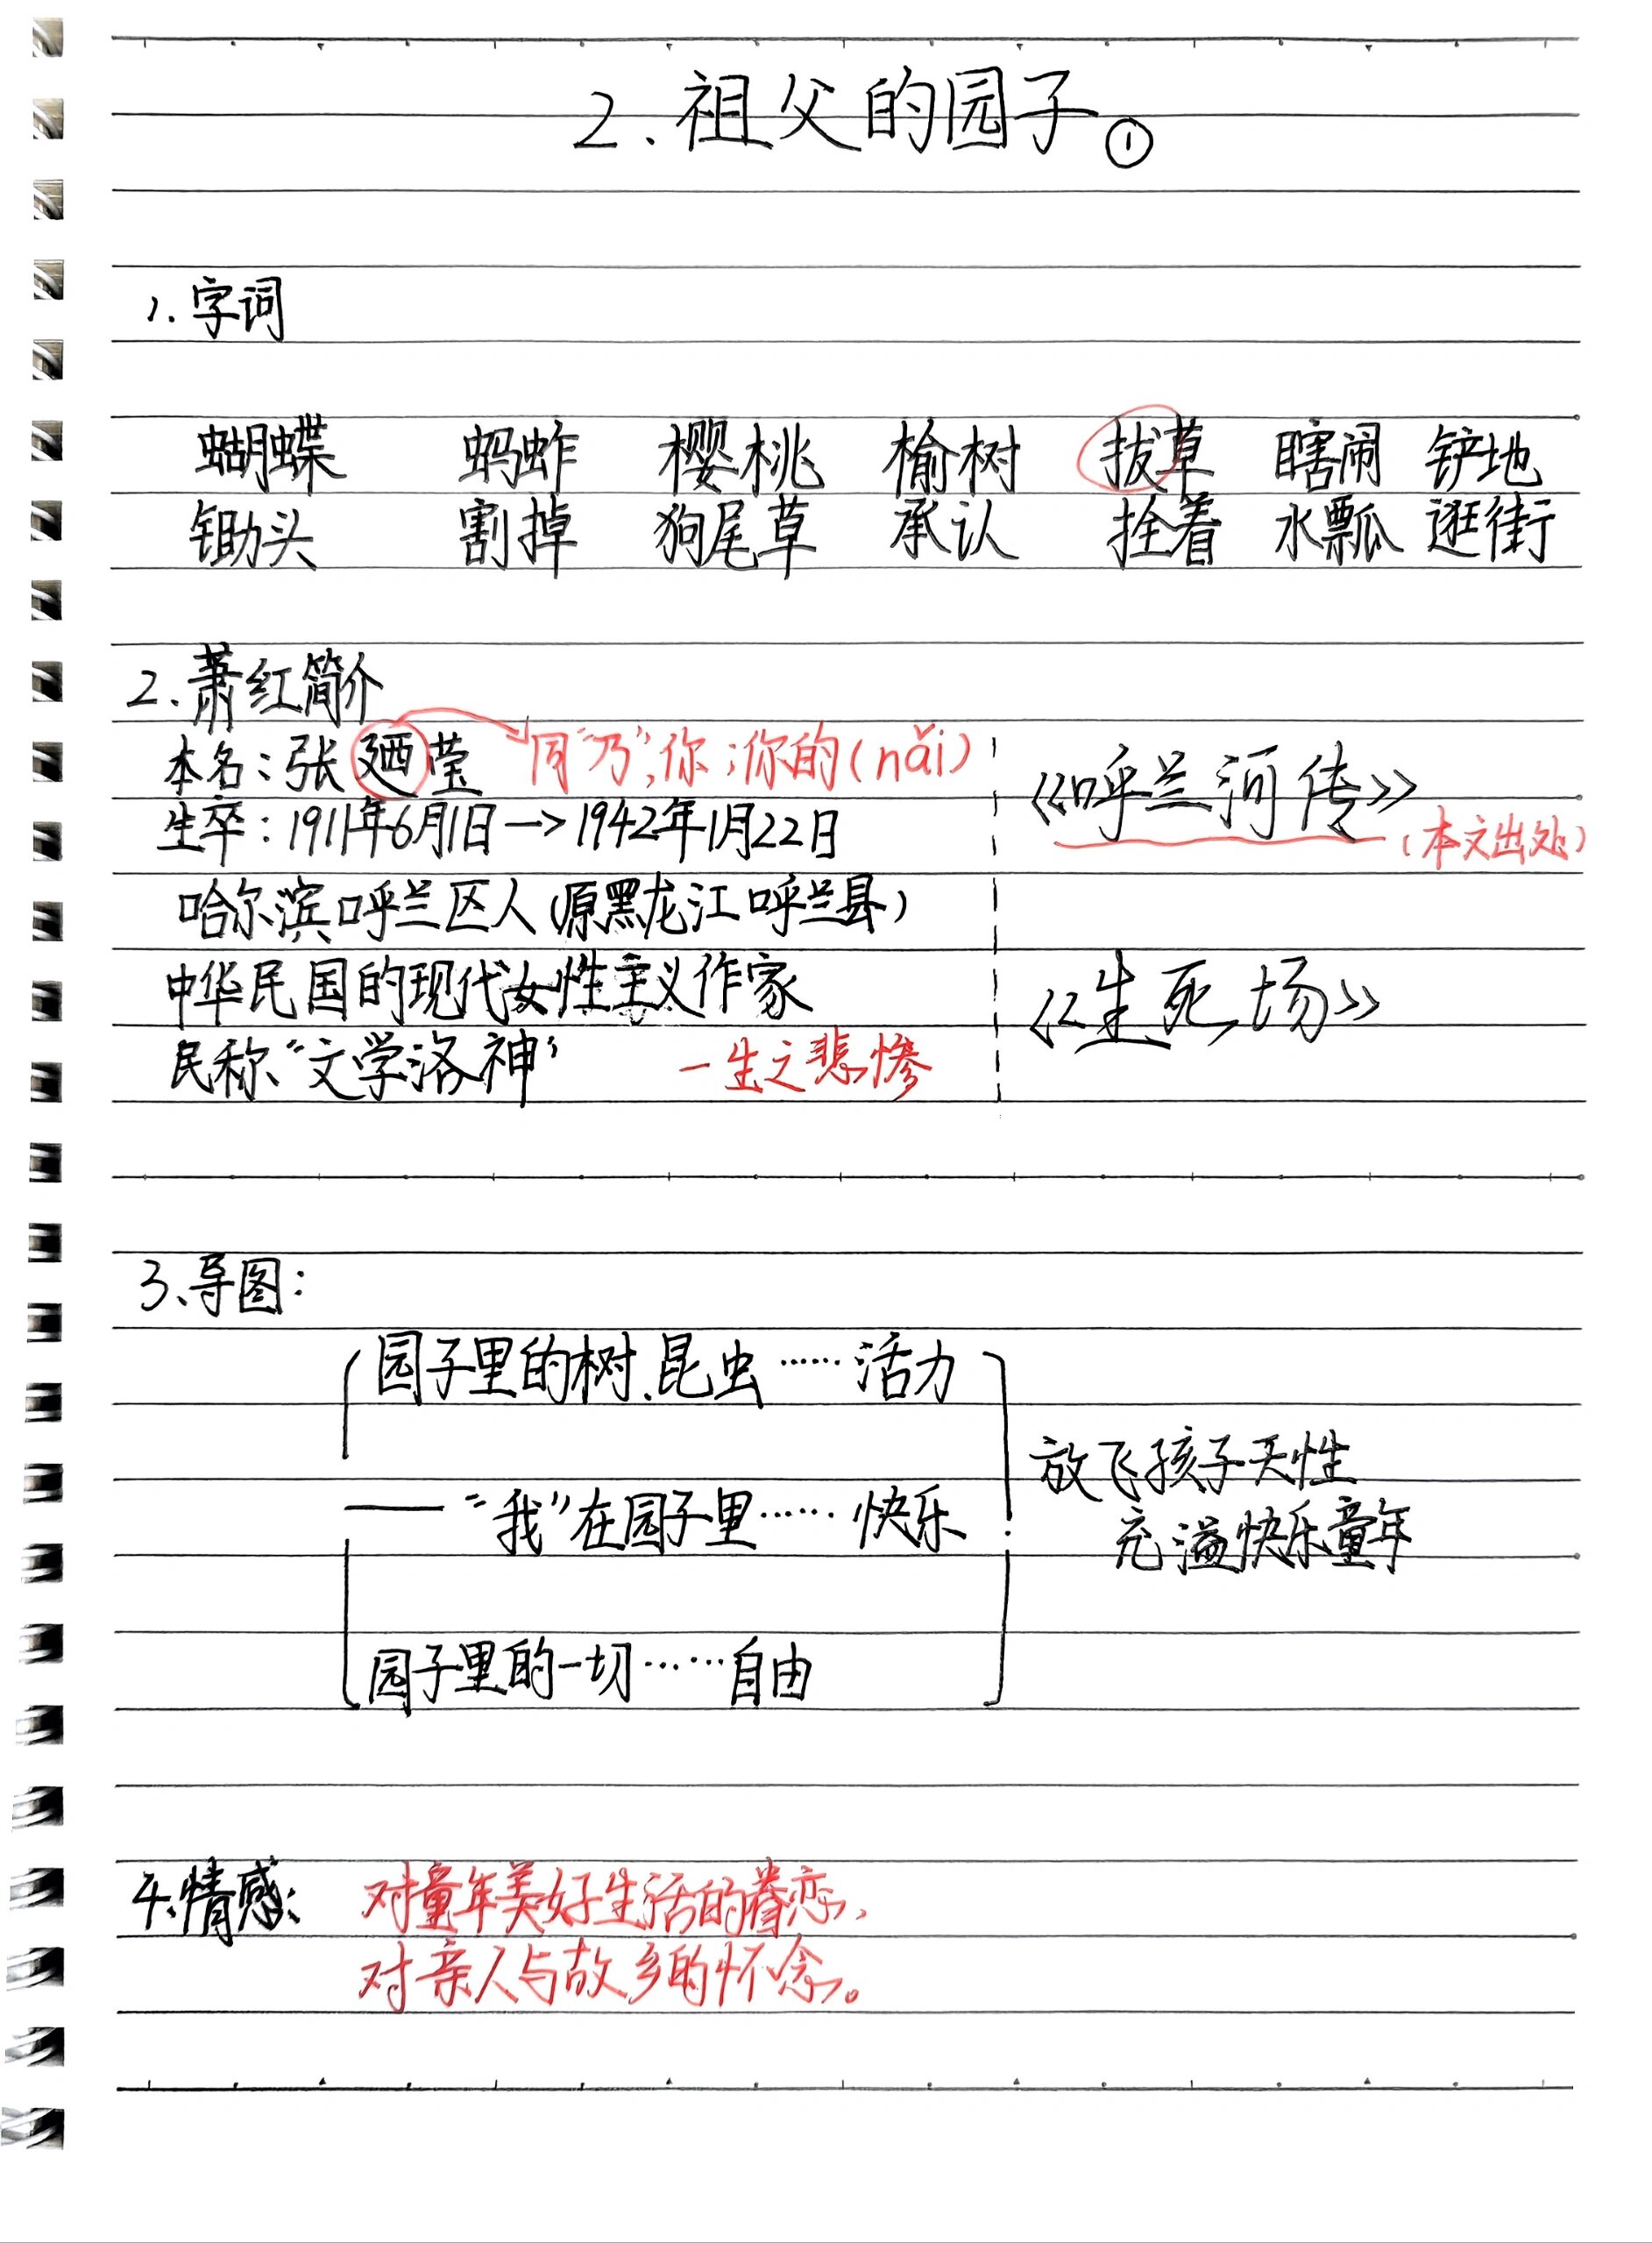 2.祖父的园子①
1.字词
蝴蝶 蚂蚱 樱桃 榆树 拔草 瞎闹 铲地
锄头 割掉 狗尾草 承认 拴着 水瓢 逛街
2.萧红简介
本名:张廼莹 同“乃”,你;你的(nǎi)
生卒:1911年6月1日→1942年1月22日
哈尔滨呼兰区人(原黑龙江呼兰县)
中华民国的现代女性主义作家
民称“文学洛神” 一生之悲惨
《呼兰河传》
(本文出处)
《生死场》
3.导图:
园子里的树、昆虫……活力
“我”在园子里……快乐
园子里的一切……自由
放飞孩子天性
充溢快乐童年
4.情感: 对童年美好生活的眷恋、
对亲人与故乡的怀念。